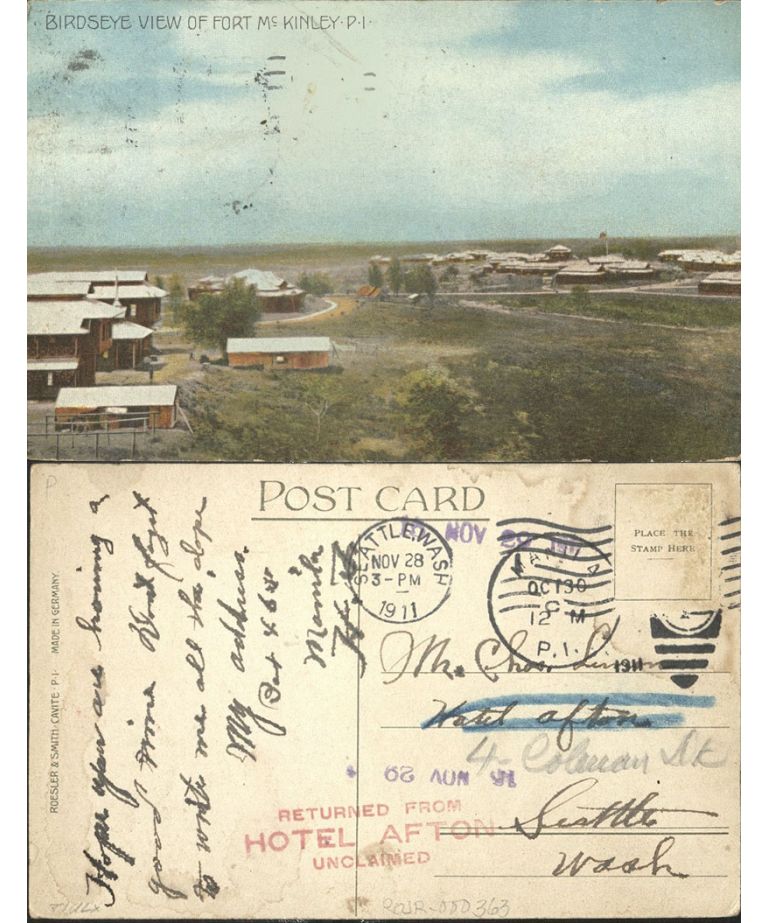 BIRDSEYE VIEW OF FORT Mc KINLEY·P·I·
P
POST CARD
PLACE THE
STAMP HERE
ROESLER & SMITH. CAVITE P·I· MADE IN GERMANY.
Hope you are having a
good time Dont forget
to write me all the dope
My address.
Manila
SEATTLE, WASH
NOV 28
3-PM
1911
NOV 29
MANILA
OCT 30
12 M
P.I.
1911
Mr. Chas.
Hotel afton
4- Colman Dk
Seattle
Wash
NOV 29
RETURNED FROM
HOTEL AFTON
UNCLAIMED